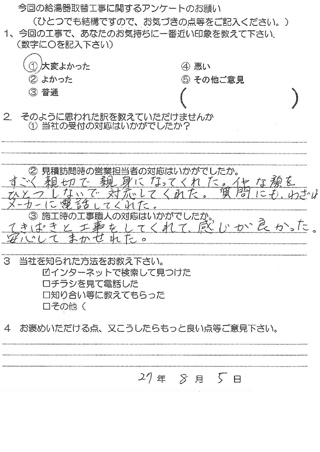 今回の給湯器取替工事に関するアンケートのお願い
(ひとつでも結構ですので、お気づきの点等をご記入ください。)
1、今回の工事で、あなたのお気持ちに一番近い印象を教えて下さい。
(数字に○を記入下さい)
① 大変よかった ④ 悪い
② よかった ⑤ その他ご意見
③ 普通 ( )
2. そのように思われた訳を教えていただけませんか
① 当社の受付の対応はいかがでしたか?
② 見積訪問時の営業担当者の対応はいかがでしたか。
すごく親切で親身になってくれた。イヤな顔を
ひとつしないで対応してくれた。質問にも、わざわざ
メーカーに電話してくれた。
③ 施工時の工事職人の対応はいかがでしたか。
てきぱきと工事をしてくれて、感じが良かった。
安心してまかせれた。
3 当社を知られた方法をお教え下さい。
☑インターネットで検索して見つけた
□チラシを見て電話した
□知り合い等に教えてもらった
□その他(
4 お褒めいただける点、又こうしたらもっと良い点等ご意見下さい。
27 年 8 月 5 日